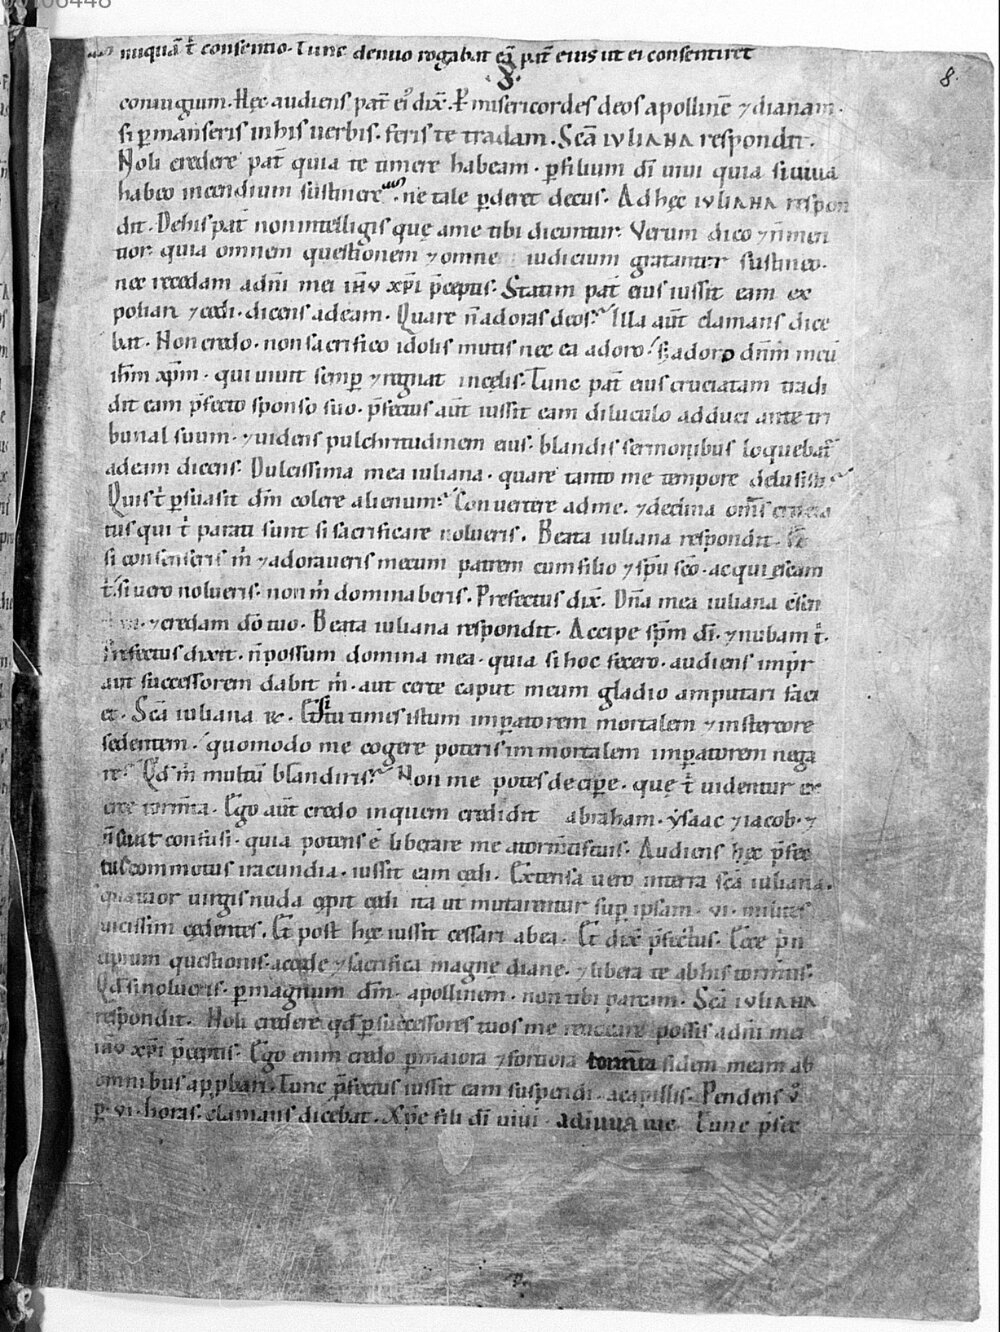 nuquā t̄ consentio. Tunc denuo rogabat eā pat̄ eius ut ei consentiret
8.
coniugium. Hęc audiens pat̄ ei᷒ dix̄. P̄ misericordes deos apollinē ⁊ dianam.
si p̄manseris in his uerbis. feris te tradam. Sc̄a IULIANA respondit.
Noli credere pat̄ quia te timere habeam. p̄ filium dī uiui quia si uiua
habeo incendium sustinere. ne tale p̄deret decus. Ad hęc IULIANA respon
dit. De his pat̄ non intelligis quę a me tibi dicuntur. Verum dico ⁊ n̄ men
tior. quia omnem questionem ⁊ omne iudicium gratanter sustineo.
nec recedam a dn̄i mei ihū xp̄i p̄ceptis. Statim pat̄ eius iussit eam ex
poliari ⁊ cędi. dicens ad eam. Quare n̄ adoras deos? Illa aut̄ clamans dice
bat. Non credo. non sacrifico idolis mutis nec ea adoro. s; adoro dn̄m meū
ih̄m xp̄m. qui uiuit semp̄ ⁊ regnat in cęlis. Tunc pat̄ eius cruciatam tradi
dit eam p̄fecto sponso suo. p̄fectus aut̄ iussit eam diluculo adduci ante tri
bunal suum. ⁊ uidens pulchritudinem eius. blandis sermonibus loquebat̄
ad eam dicens. Dulcissima mea iuliana. quare tanto me tempore delusisti?
Quis t̄ p̄suasit dm̄ colere alienum? Conuertere ad me. ⁊ declina om̄s crucia
tus qui t̄ parati sunt si sacrificare nolueris. Beata iuliana respondit.
si consenseris m̄ ⁊ adoraueris mecum patrem cum filio ⁊ sp̄u sc̄o. acquiescam
t̄. si uero nolueris. non m̄ dominaberis. Prefectus dix̄. Dn̄a mea iuliana
⁊ credam dō tuo. Beata iuliana respondit. Accipe sp̄m dī. ⁊ nubam t̄.
Prefectus dixit. n̄ possum domina mea. quia si hoc fecero. audiens imp̄r
aut successorem dabit m̄. aut certe caput meum gladio amputari faci
et. Sc̄a iuliana R̄. Et si tu times istum imp̄atorem mortalem ⁊ in stercore
sedentem. quomodo me cogere poteris immortalem imp̄atorem nega
re? Qd̄ m̄ multū blandiris? Non me potes decipe. quę t̄ uidentur ex
cre torm̄ta. Ego aut̄ credo in quem credidit abraham. ysaac ⁊ iacob. ⁊
n̄ sunt confusi. quia potens ē liberare me a torm̄tis tuis. Audiens hęc p̄fec
tus commotus iracundia. iussit eam cędi. Extensa uero in terra sc̄a iuliana.
quatuor uirgis nuda cępit cędi ita ut mutarentur sup̄ ipsam. vi. milites
uicissim cędentes. Et post hęc iussit cessari ab ea. Et dix̄ p̄fectus. Ecce p̄n
cipium questionis. accede ⁊ sacrifica magnę dianę. ⁊ libera te ab his torm̄tis.
Qd̄ si nolueris. p̄ magnum dm̄. apollinem. non tibi parcam. Sc̄a IULIANA
respondit. Noli credere qd̄ p̄ successores tuos me reuocare possis a dn̄i mei
ihū xp̄i p̄ceptis. Ego enim credo p̄ maiora ⁊ fortiora torm̄ta fidem meam ab
omnibus app̄bari. Tunc p̄fectus iussit eam suspendi. a capillis. Pendens ū
p̄. vi. horas. clamans dicebat. Xp̄e fili dī uiui. adiuua me. Tunc p̄fec